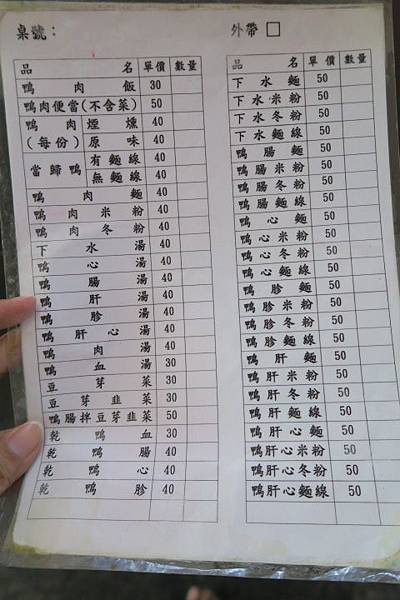 桌號：
外帶 □
品名 單價 數量
鴨肉飯 30
鴨肉便當(不含菜) 50
鴨肉煙燻 40
(每份)原味 40
當歸鴨 有麵線 40
無麵線 40
鴨肉麵 40
鴨肉米粉 40
鴨肉冬粉 40
下水湯 40
鴨心湯 40
鴨腸湯 40
鴨肝湯 40
鴨胗湯 40
鴨肝心湯 40
鴨肉湯 40
鴨血湯 30
豆芽菜 30
豆芽韭菜 30
鴨腸拌豆芽韭菜 50
乾鴨血 30
乾鴨腸 40
乾鴨心 40
乾鴨胗 40
品名 單價 數量
下水麵 50
下水米粉 50
下水冬粉 50
下水麵線 50
鴨腸麵 50
鴨腸米粉 50
鴨腸冬粉 50
鴨腸麵線 50
鴨心麵 50
鴨心米粉 50
鴨心冬粉 50
鴨心麵線 50
鴨胗麵 50
鴨胗米粉 50
鴨胗冬粉 50
鴨胗麵線 50
鴨肝麵 50
鴨肝米粉 50
鴨肝冬粉 50
鴨肝麵線 50
鴨肝心麵 50
鴨肝心米粉 50
鴨肝心冬粉 50
鴨肝心麵線 50